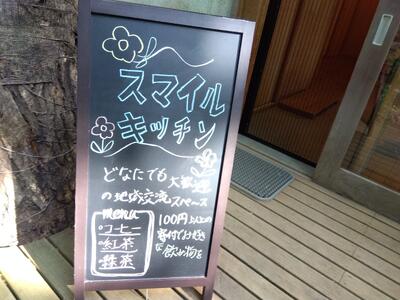 スマイル
キッチン
どなたにでも大歓迎
の地域交流スペース
menu
・コーヒー
・紅茶
・抹茶
100円以上の
寄付でお好き
な飲み物を